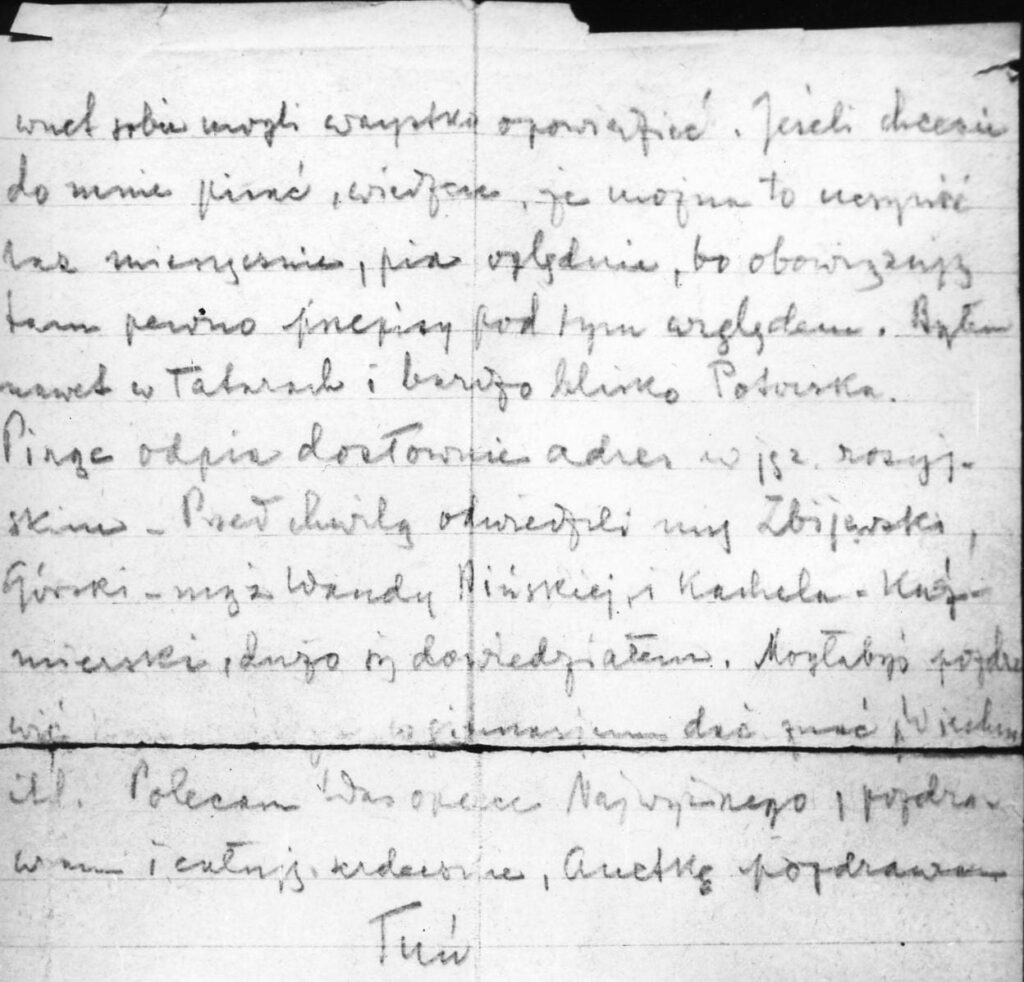 wnet sobie mogli wszystko opowiedzieć. Jeżeli chcecie
do mnie pisać, wiedzcie, że można to uczynić
raz miesięcznie, pisz oględnie, bo obowiązują
tam pewno przepisy pod tym względem. Byłem
nawet w Tatarach i bardzo blisko Potoriska.
Pisząc odpisz dosłownie adres w jęz. rosyj-
skim – Przed chwilą odwiedzili mię Zbijewski,
Górski – mąż Wandy i Kachela – Kaź-
mierski, dużo się dowiedziałem. Mogłabyś pozdro
wić w gimnazjum dać znać
itd. Polecam Was opiece Najwyższego, pozdra-
wiam i całuję serdecznie, Anetkę pozdrawiam
Tuń